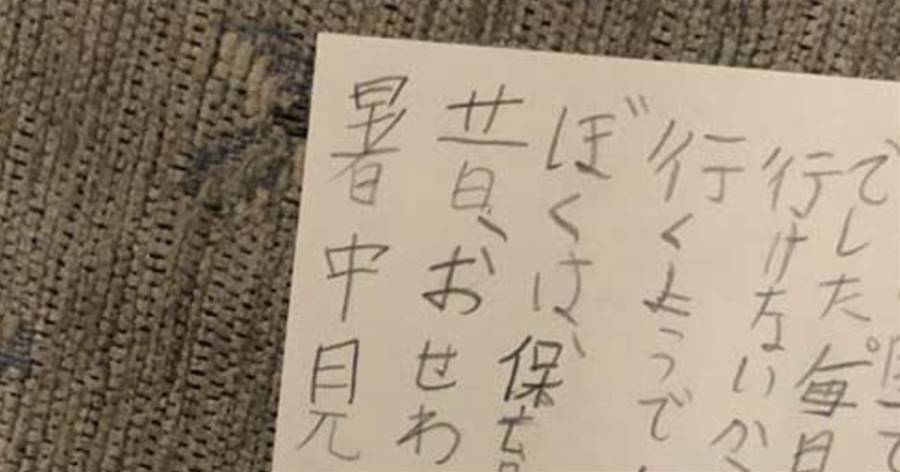 暑中見
昔、おせわ
ぼくは、保育
行くようで
行けないか
でした。毎日